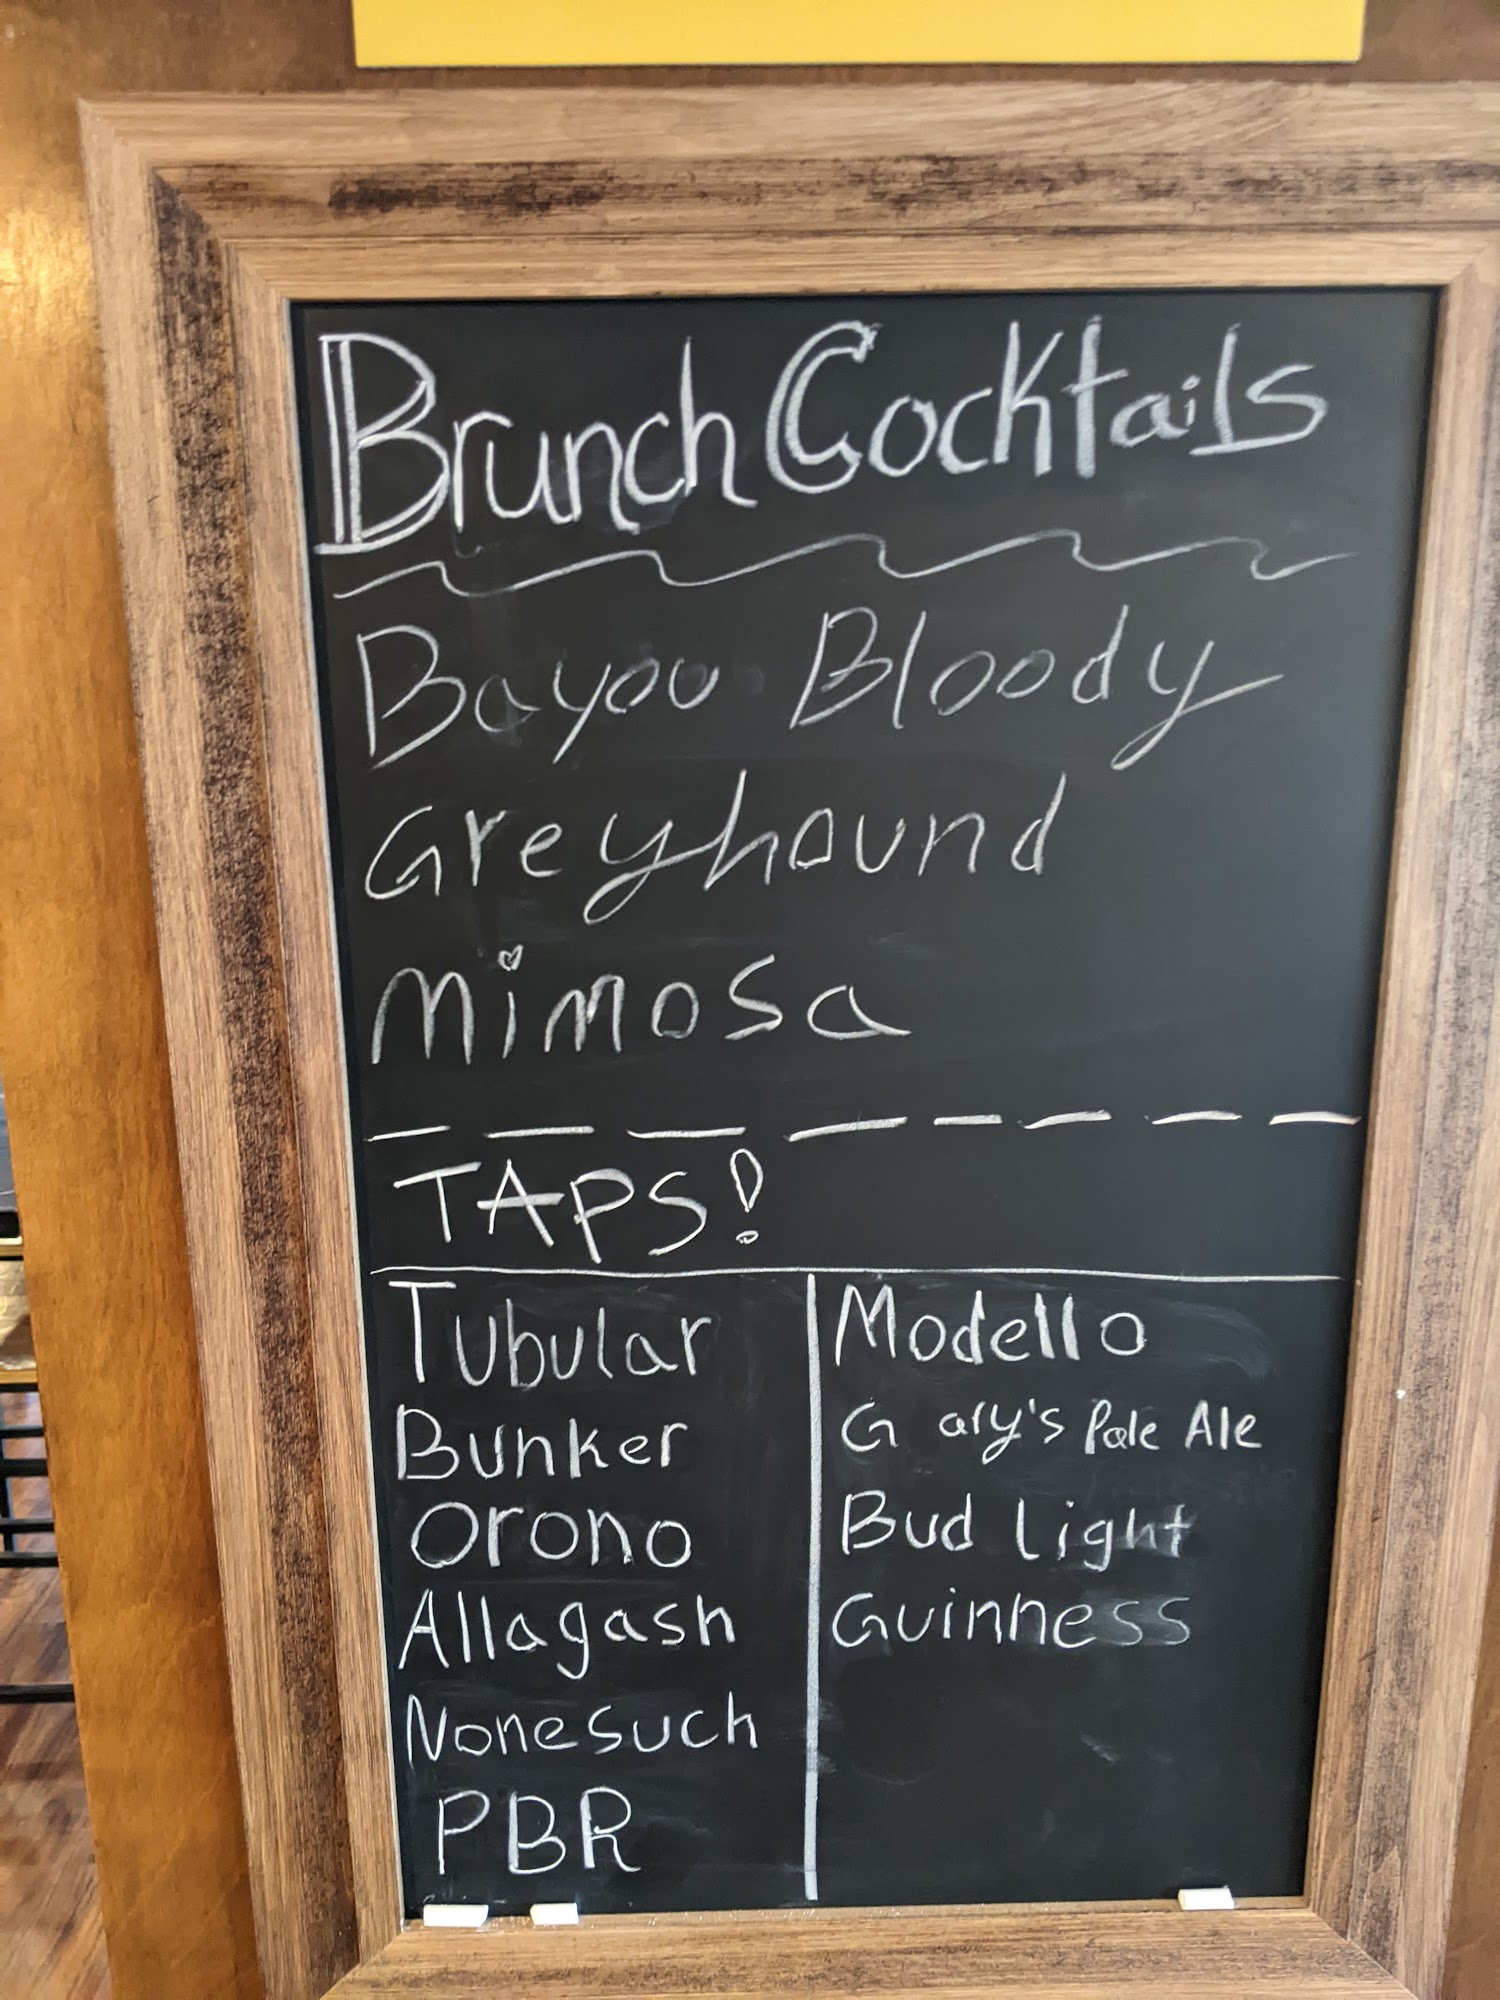 Brunch Cocktails
Bayou Bloody
Greyhound
Mimosa
TAPS!
Tubular
Bunker
Orono
Allagash
Nonesuch
PBR
Modello
Gary's Pale Ale
Bud Light
Guinness